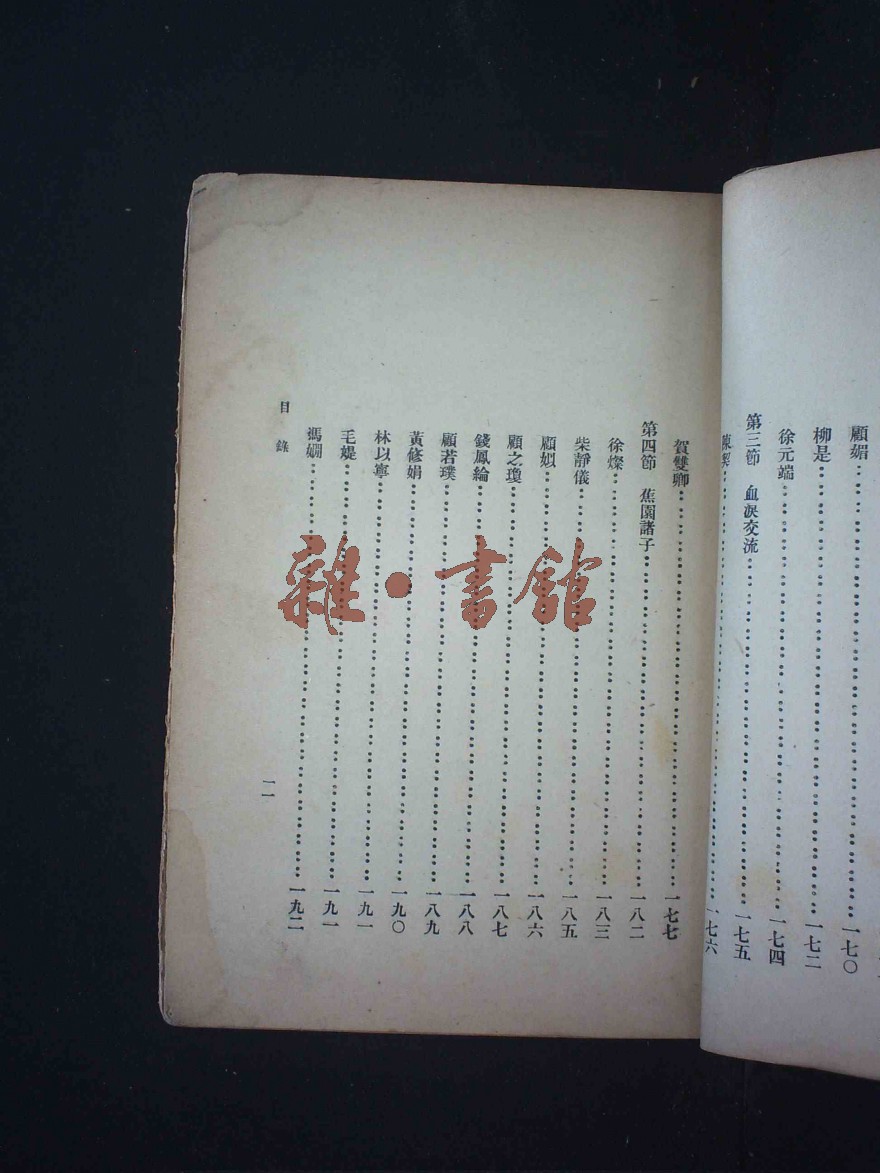 顧媚……………………一七〇
柳是……………………一七二
徐元端……………………一七四
第三節 血淚交流……………………一七五
陳契……………………一七六
賀雙卿……………………一七七
第四節 蕉園諸子……………………一八二
徐燦……………………一八三
柴靜儀……………………一八五
顧姒……………………一八六
顧之瓊……………………一八七
錢鳳綸……………………一八八
顧若璞……………………一八九
黃修娟……………………一九〇
林以寧……………………一九一
毛媞……………………一九一
馮嫻……………………一九二
目錄
一一
雜·書館